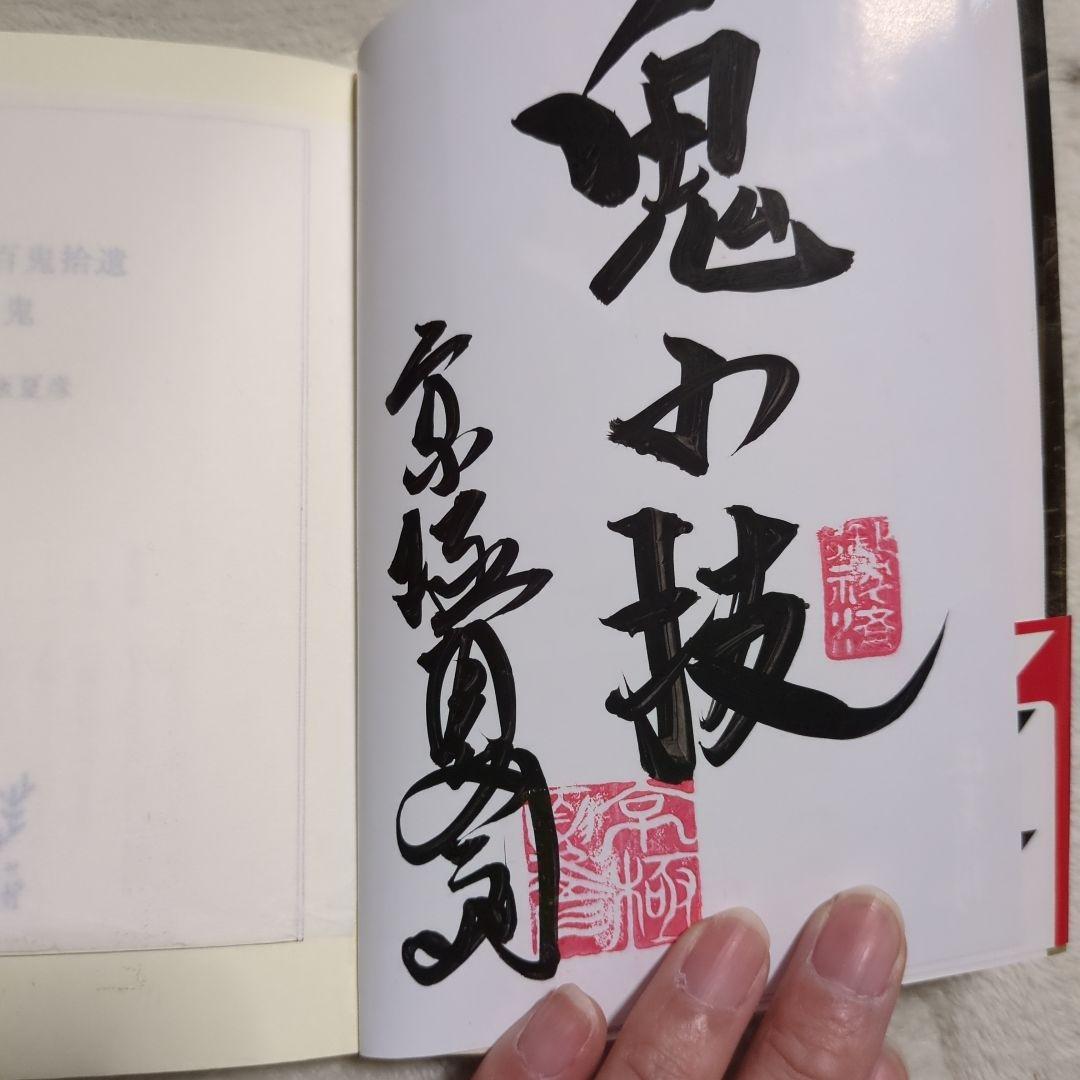 鬼の技
京極夏彦
京極
百鬼拾遺
鬼
夏彦